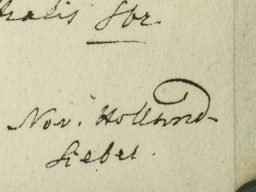 tralis Sbr.
Nov. Holland.
Sieber.